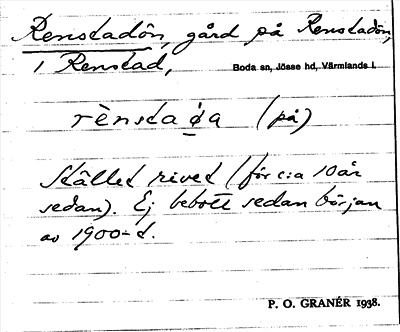 Renstadön, gård på Renstadön,
i Renstad, Boda sn, Jösse hd, Värmlands l.
rènsta ø̀a (på)
Stället rivet (för c:a 10 år
sedan). Ej bebott sedan början
av 1900-t.
P. O. GRANÉR 1938.